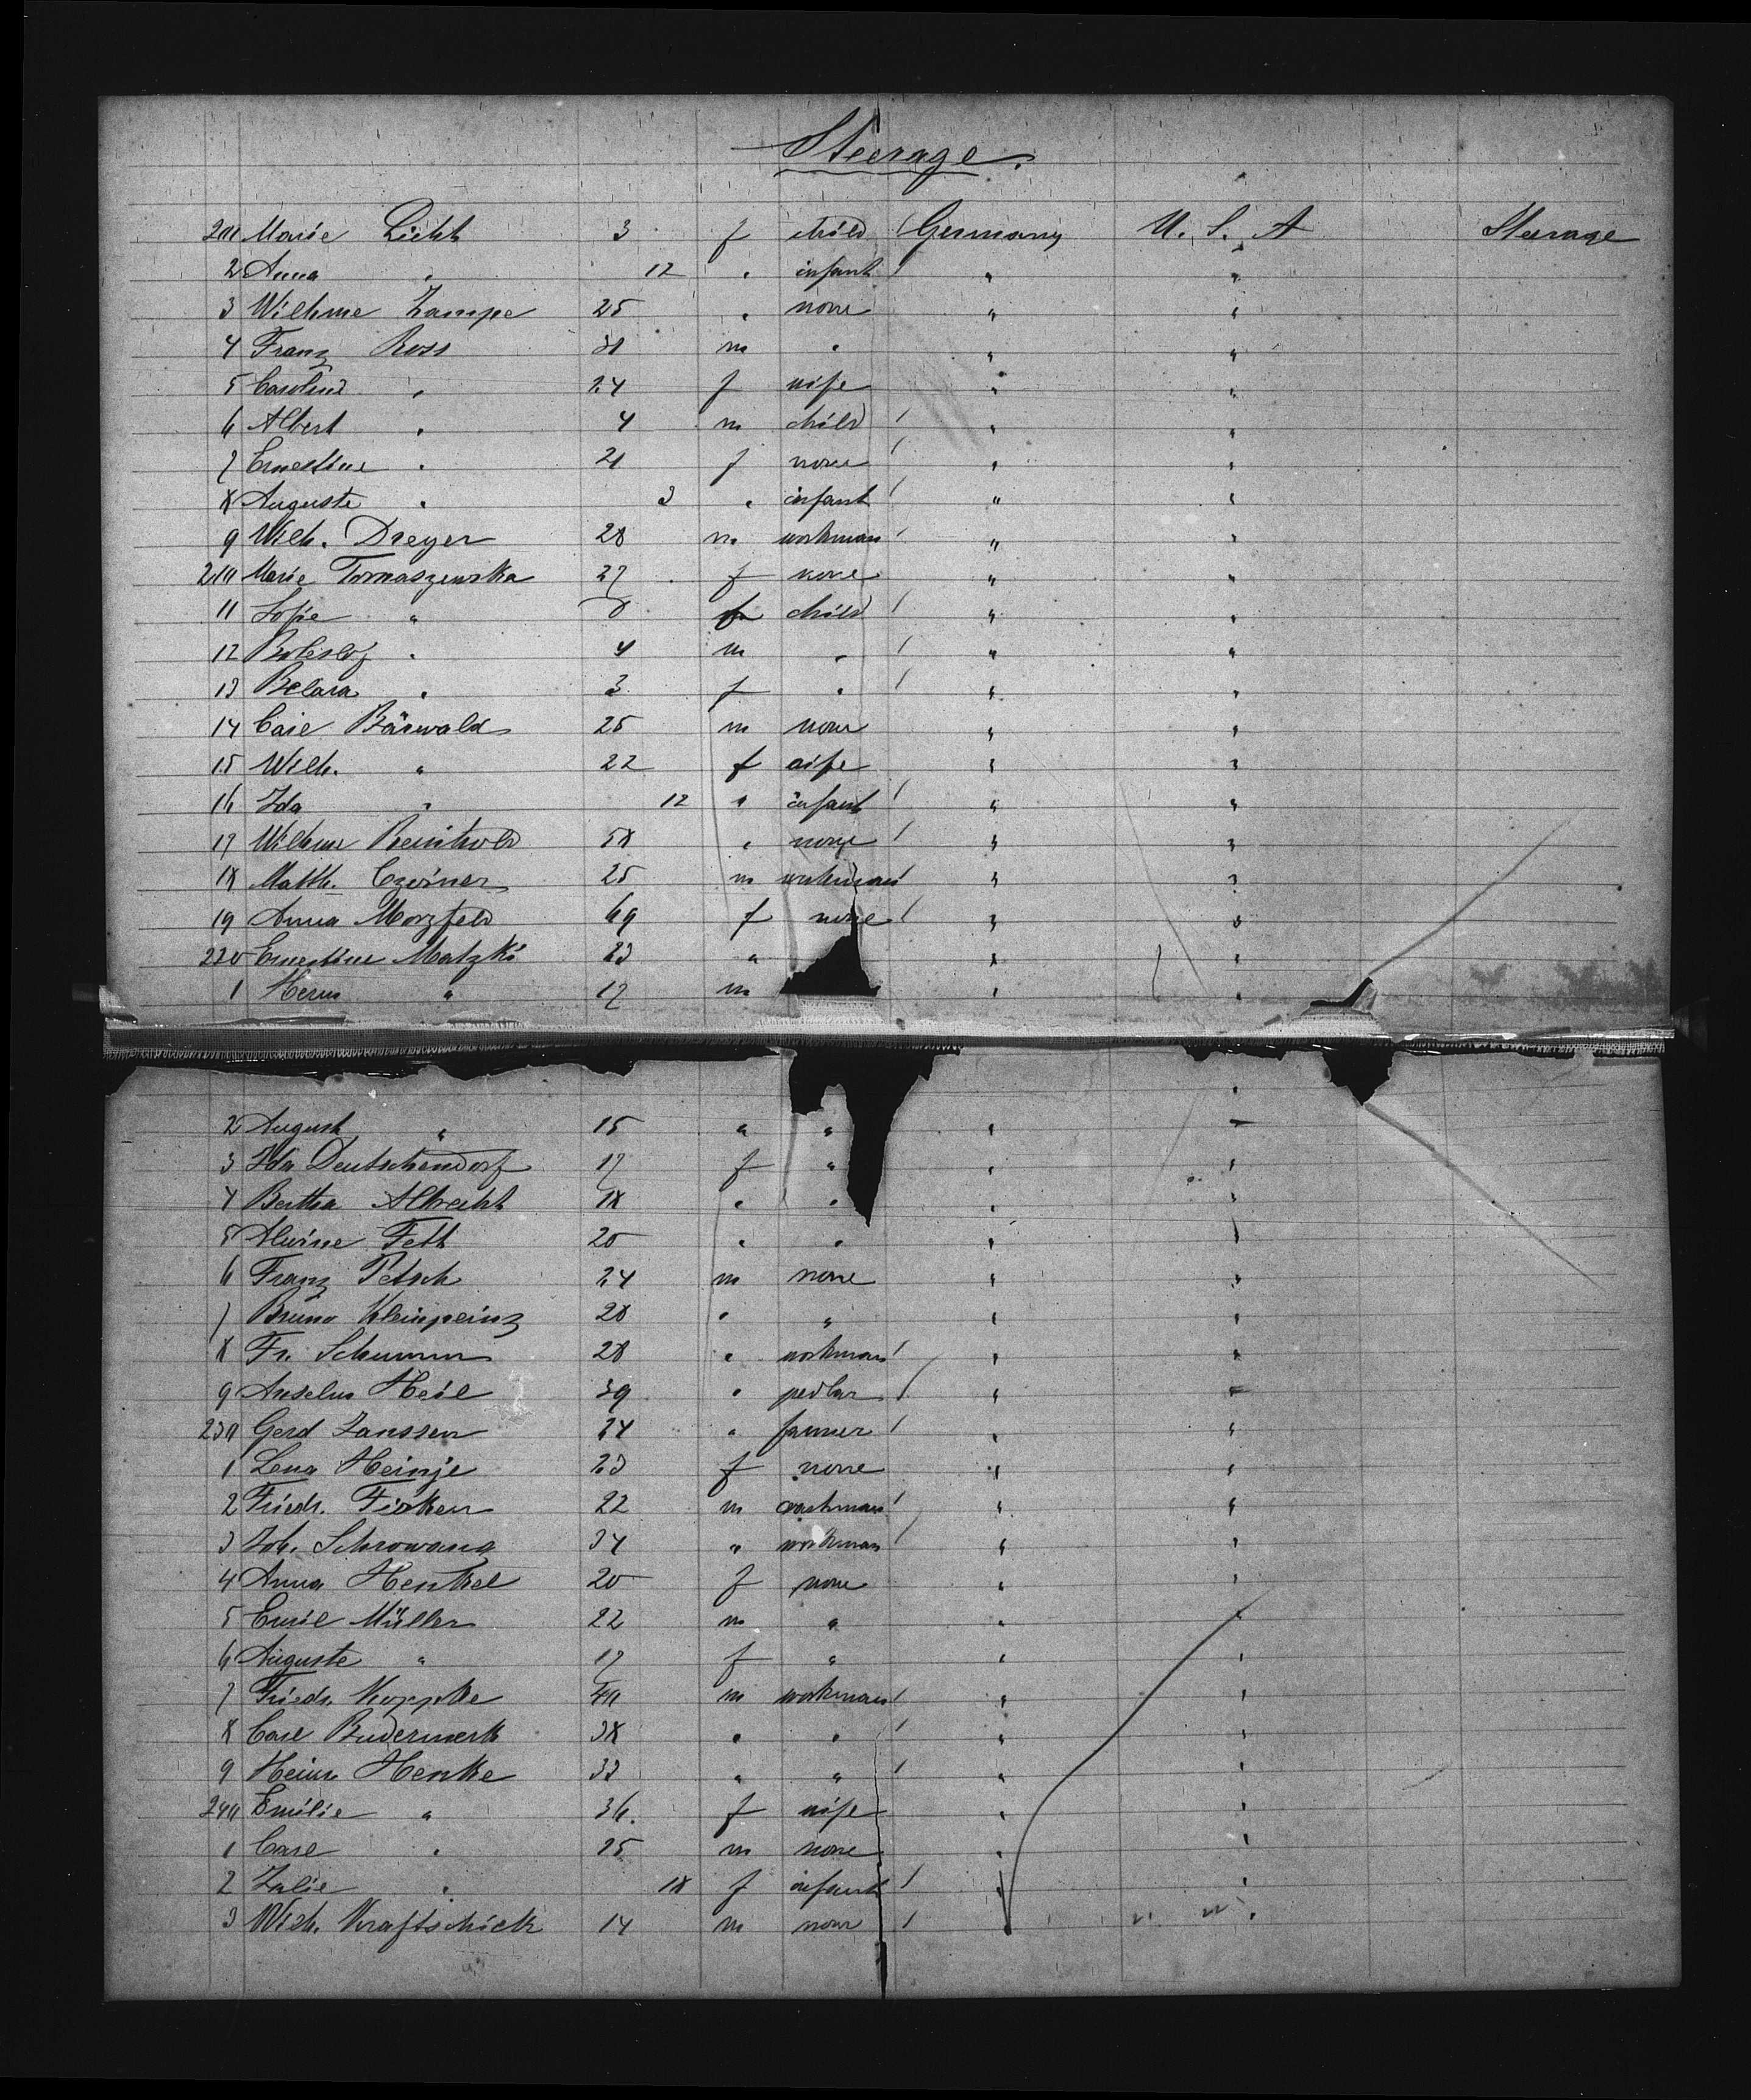 Steerage.
201 Marie Licht 3 f child Germany U. S. A Steerage
2 Anna " 12 " infant " "
3 Wilhme Zampe 25 " none " "
4 Franz Ross 31 m " " "
5 Caroline " 24 f wife " "
6 Albert " 4 m child " "
7 Ernestine " 21 f none " "
8 Auguste " 3 " infant " "
9 Wilh. Dreyer 28 m workman " "
210 Marie Tomaszewska 27 f none " "
11 Sofie " 8 f child " "
12 " 4 m " " "
13 " 3 f " " "
14 Carl Bärwald 25 m none " "
15 Wilh. " 22 f wife " "
16 Ida " 12 " infant " "
17 Wilhme Reinhold 58 " none " "
18 Matth. Czeiner 25 m workman " "
19 Anna Morzfeld 69 f none " "
220 Ernestine Matzki 23 " " "
1 Herm " 17 m " "
2 August " 15 " " " "
3 Ida Deutschendorf 17 f " " "
4 Bertha Albrecht 18 " " " "
5 Alwine Fett 20 " " " "
6 Franz Petsch 24 m none " "
7 Bruno Kleinpeinz 28 " " " "
8 Fr. Schumm 28 " workman " "
9 Anselm Heil 39 " pedlar " "
230 Gerd Janssen 24 " farmer " "
1 Lena Heinje 23 f none " "
2 Friedr. Ficken 22 m workman " "
3 Joh. Schrowang 34 " workman " "
4 Anna Henkel 20 f none " "
5 Emil Müller 22 m " " "
6 Auguste " 17 f " " "
7 Friedr. Koppke 40 m workman " "
8 Carl Budermerk 38 " " " "
9 Heinr. Henke 33 " " " "
240 Emilie " 36. f wife " "
1 Carl " 15 m none " "
2 Julie " 18 f infant " "
3 Wilh. Kraftschick 14 m none " "